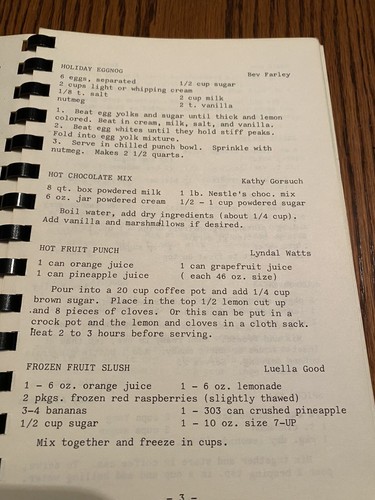 HOLIDAY EGGNOG
Bev Farley
6 eggs, separated 1/2 cup sugar
2 cups light or whipping cream
1/8 t. salt 2 cup milk
nutmeg 2 t. vanilla
1. Beat egg yolks and sugar until thick and lemon
colored. Beat in cream, milk, salt, and vanilla.
2. Beat egg whites until they hold stiff peaks.
Fold into egg yolk mixture.
3. Serve in chilled punch bowl. Sprinkle with
nutmeg. Makes 2 1/2 quarts.
HOT CHOCOLATE MIX Kathy Gorsuch
8 qt. box powdered milk 1 lb. Nestle's choc. mix
6 oz. jar powdered cream 1/2 - 1 cup powdered sugar
Boil water, add dry ingredients (about 1/4 cup).
Add vanilla and marshmallows if desired.
HOT FRUIT PUNCH Lyndal Watts
1 can orange juice 1 can grapefruit juice
1 can pineapple juice ( each 46 oz. size)
Pour into a 20 cup coffee pot and add 1/4 cup
brown sugar. Place in the top 1/2 lemon cut up
and 8 pieces of cloves. Or this can be put in a
crock pot and the lemon and cloves in a cloth sack.
Heat 2 to 3 hours before serving.
FROZEN FRUIT SLUSH Luella Good
1 - 6 oz. orange juice 1 - 6 oz. lemonade
2 pkgs. frozen red raspberries (slightly thawed)
3-4 bananas 1 - 303 can crushed pineapple
1/2 cup sugar 1 - 10 oz. size 7-UP
Mix together and freeze in cups.
- 3 -